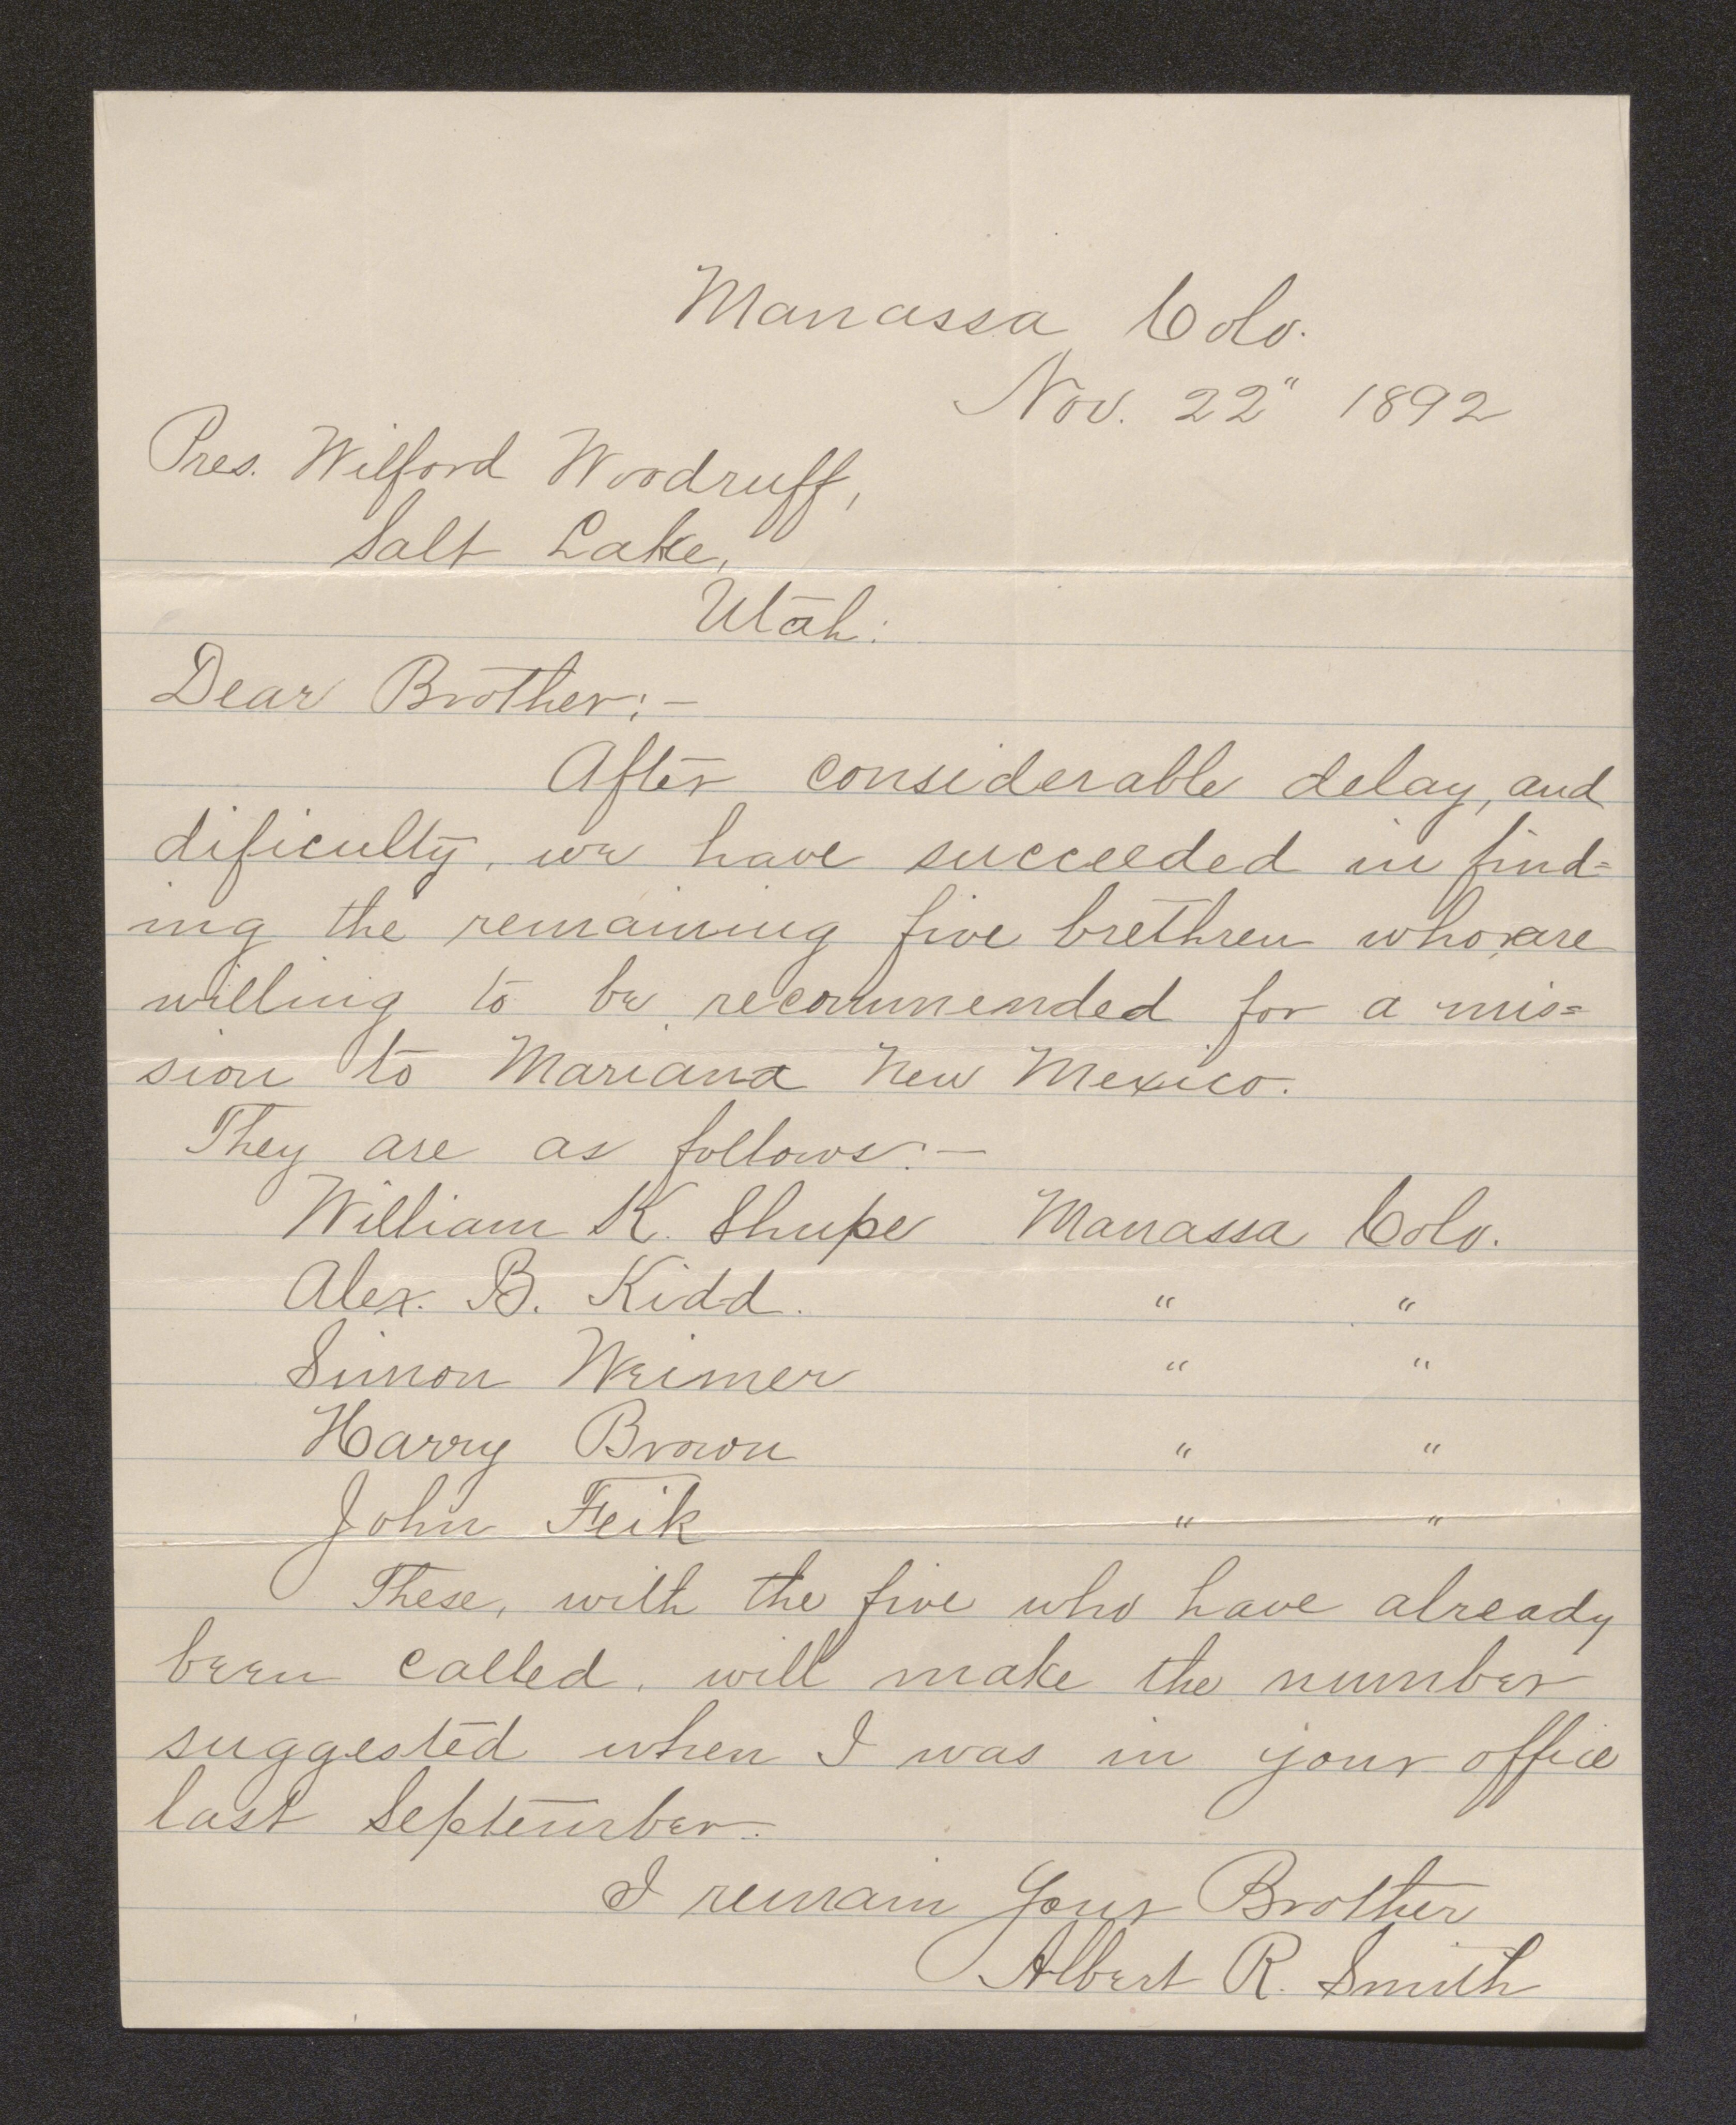 Manassa Colo.
Nov. 22" 1892
Pres. Wilford Woodruff,
Salt Lake,
Utah:
Dear Brother:-
After considerable delay, and
dificulty, we have succeeded in find=
ing the remaining five brethren who are
willing to be recommended for a mis=
sion to Mariana New Mexico.
They are as follows:-
William K. Shupe Manassa Colo.
Alex. B. Kidd. " "
Simon Weimer " "
Harry Brown " "
John Feik " "
These, with the five who have already
been called, will make the number
suggested when I was in your office
last September.
I remain Your Brother
Albert R. Smith